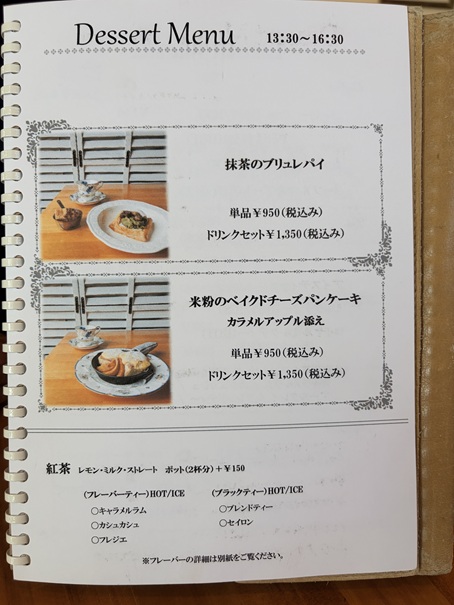 Dessert Menu 13:30～16:30
抹茶のブリュレパイ
単品￥950(税込み)
ドリンクセット￥1,350(税込み)
米粉のベイクドチーズパンケーキ
カラメルアップル添え
単品￥950(税込み)
ドリンクセット￥1,350(税込み)
紅茶 レモン・ミルク・ストレート ポット(2杯分)＋￥150
(フレーバーティー)HOT/ICE (ブラックティー)HOT/ICE
○キャラメルラム ○ブレンドティー
○カシュカシュ ○セイロン
○フレジエ
※フレーバーの詳細は別紙をご覧ください。